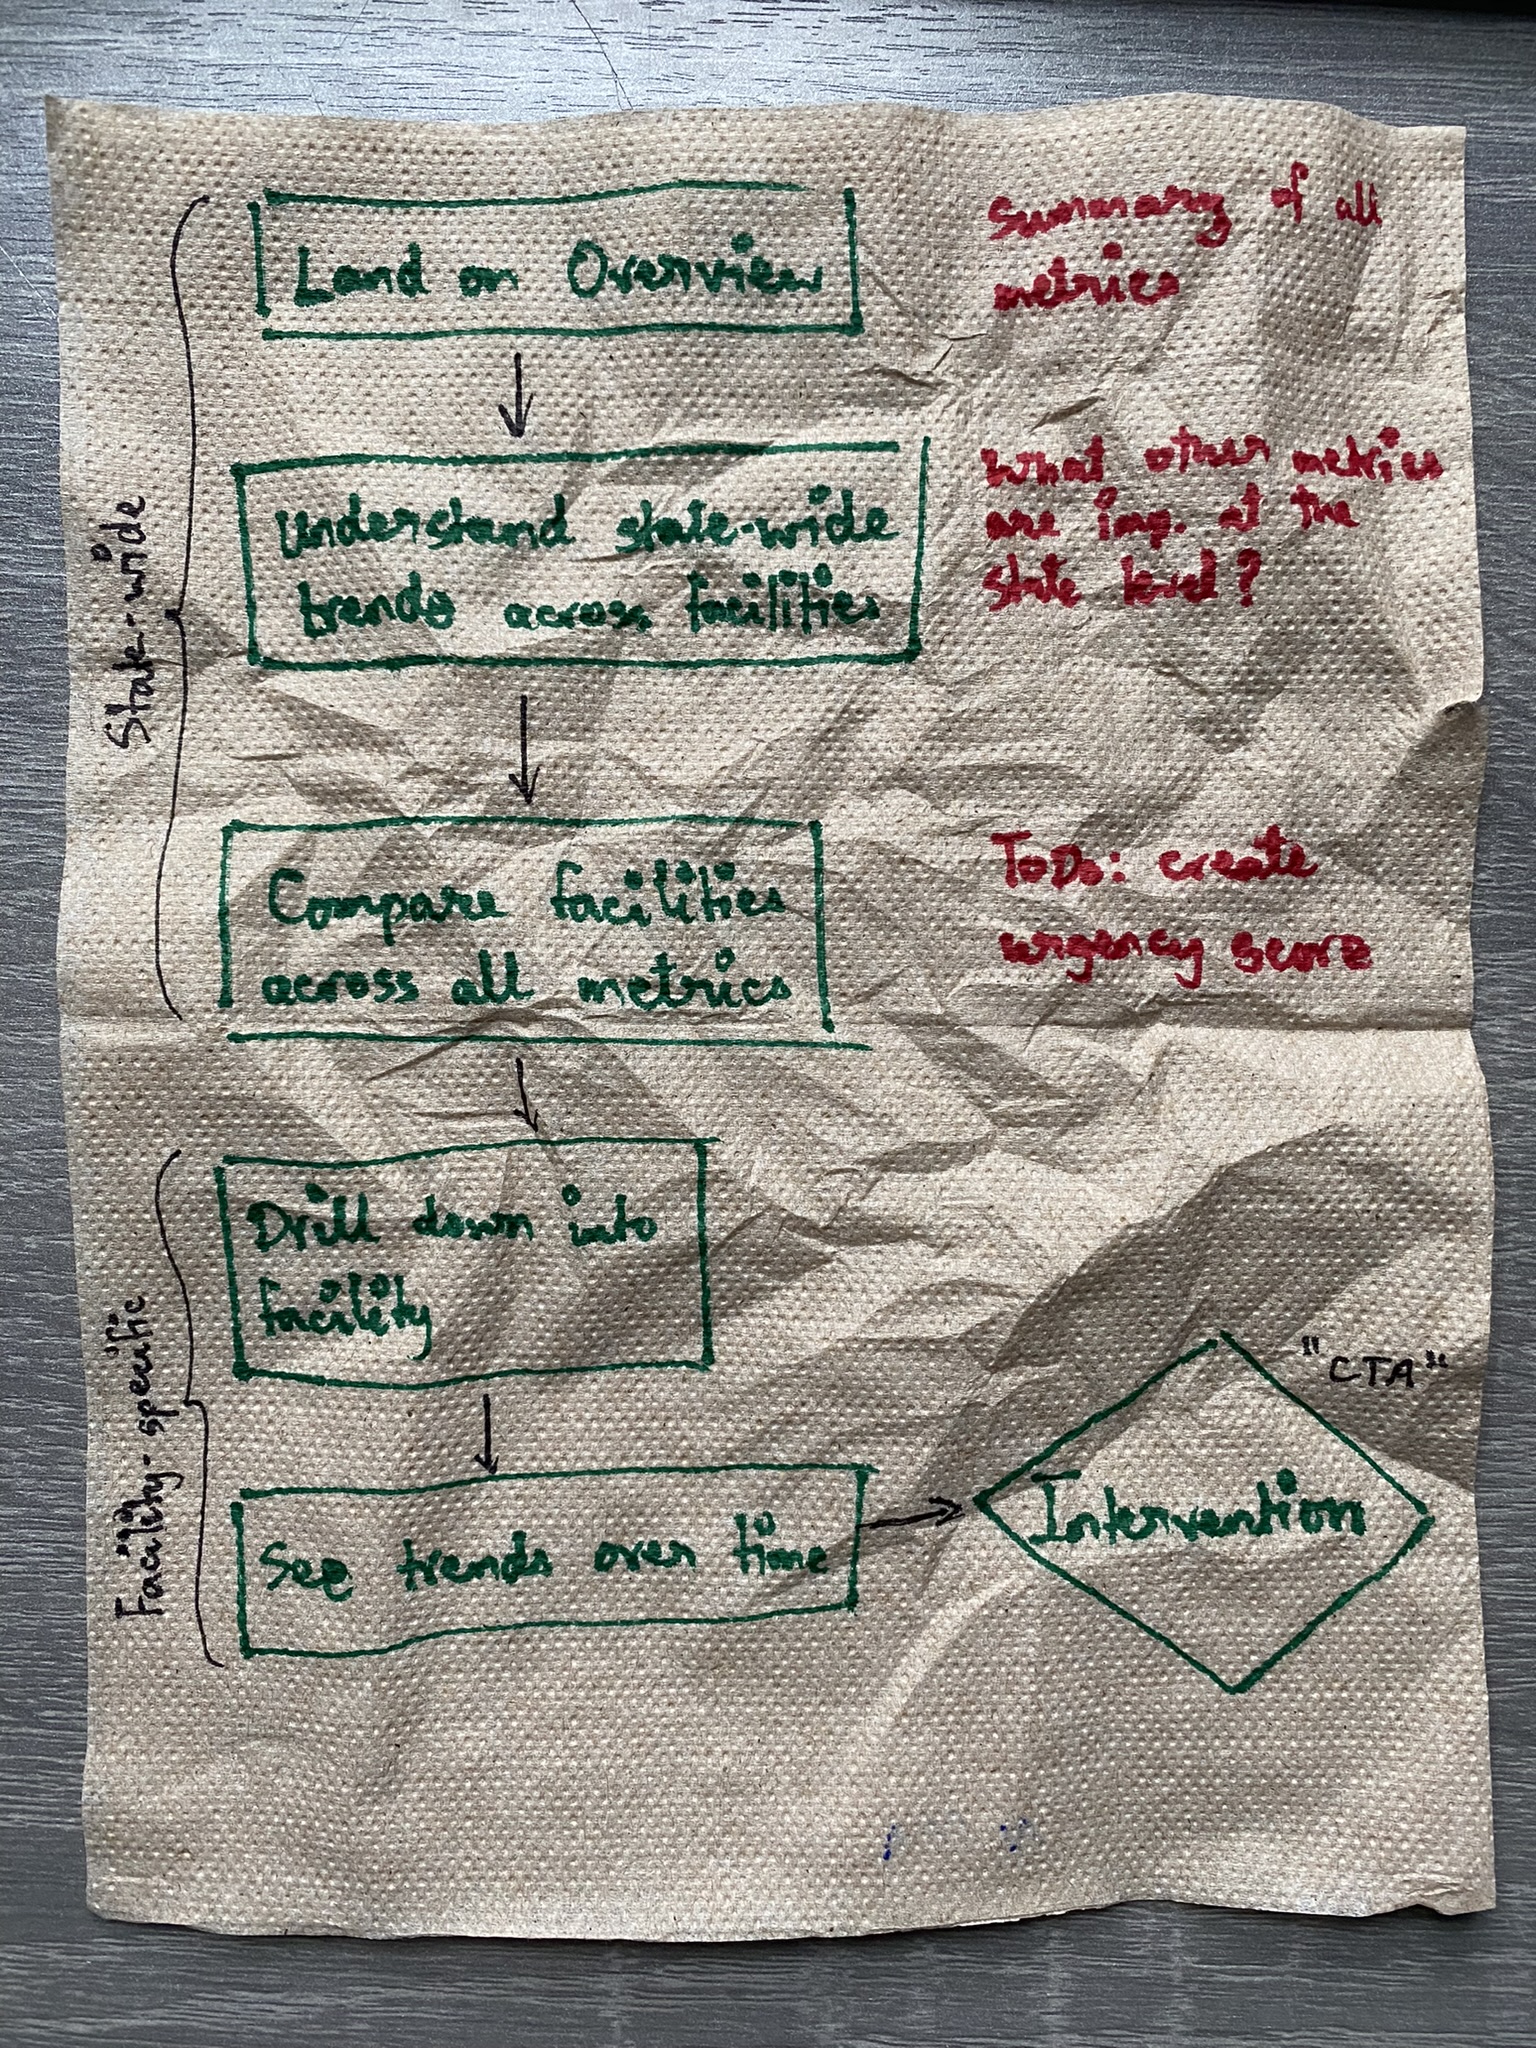 Land on Overview
Summary of all
metrics
Understand state-wide
trends across facilities
What other metrics
are imp. at the
state level?
State-wide
Compare facilities
across all metrics
ToDo: create
urgency score
Drill down into
facility
Facility-specific
See trends over time
"CTA"
Intervention